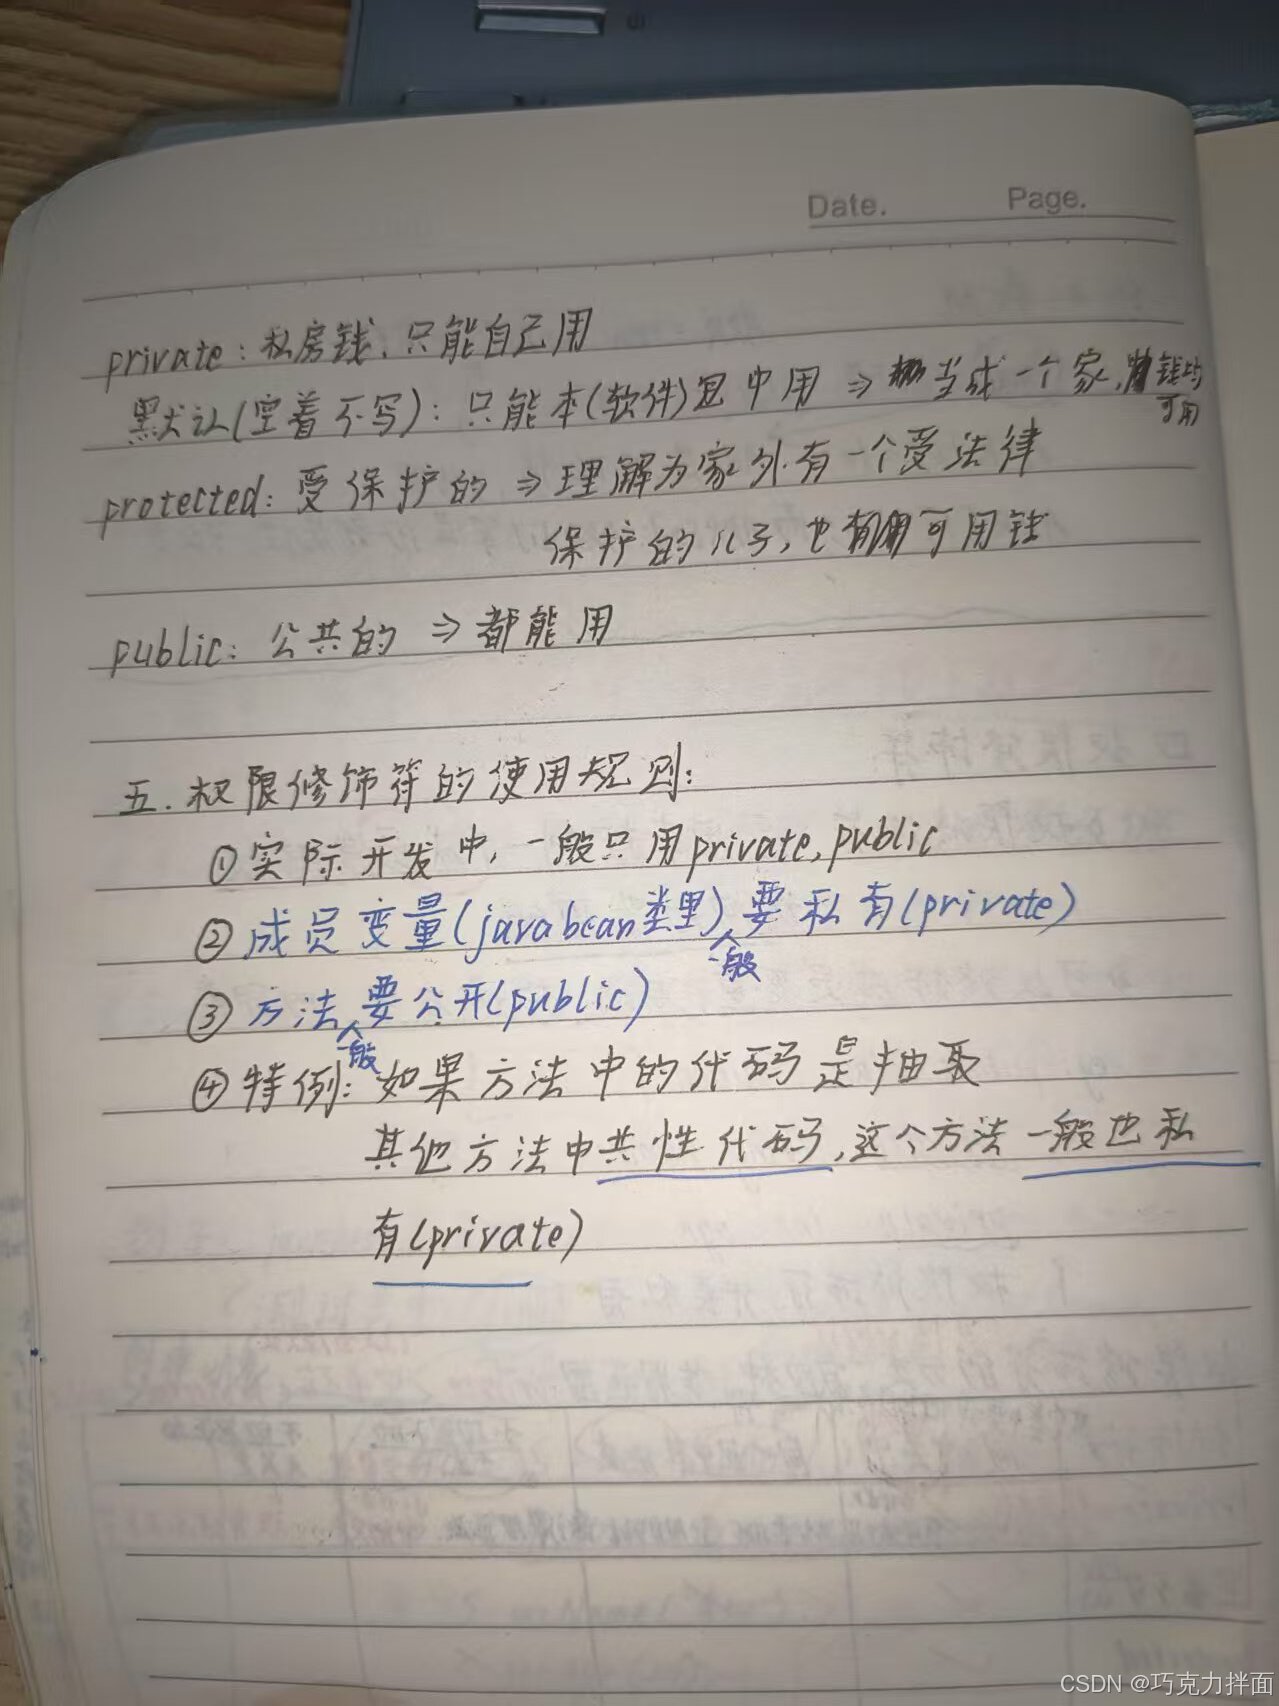 Date. Page.
private：私房钱，只能自己用
默认(空着不写)：只能本(软件)包中用 ⇒ 当成一个家，钱均可用
protected：受保护的 ⇒ 理解为家外有一个受法律
保护的儿子，也可用钱
public：公共的 ⇒ 都能用
五.权限修饰符的使用规则：
①实际开发中，一般只用private,public
②成员变量(javabean类里)一般要私有(private)
③方法一般要公开(public)
④特例：如果方法中的代码是抽取
其他方法中共性代码,这个方法一般也私
有(private)
CSDN @巧克力拌面